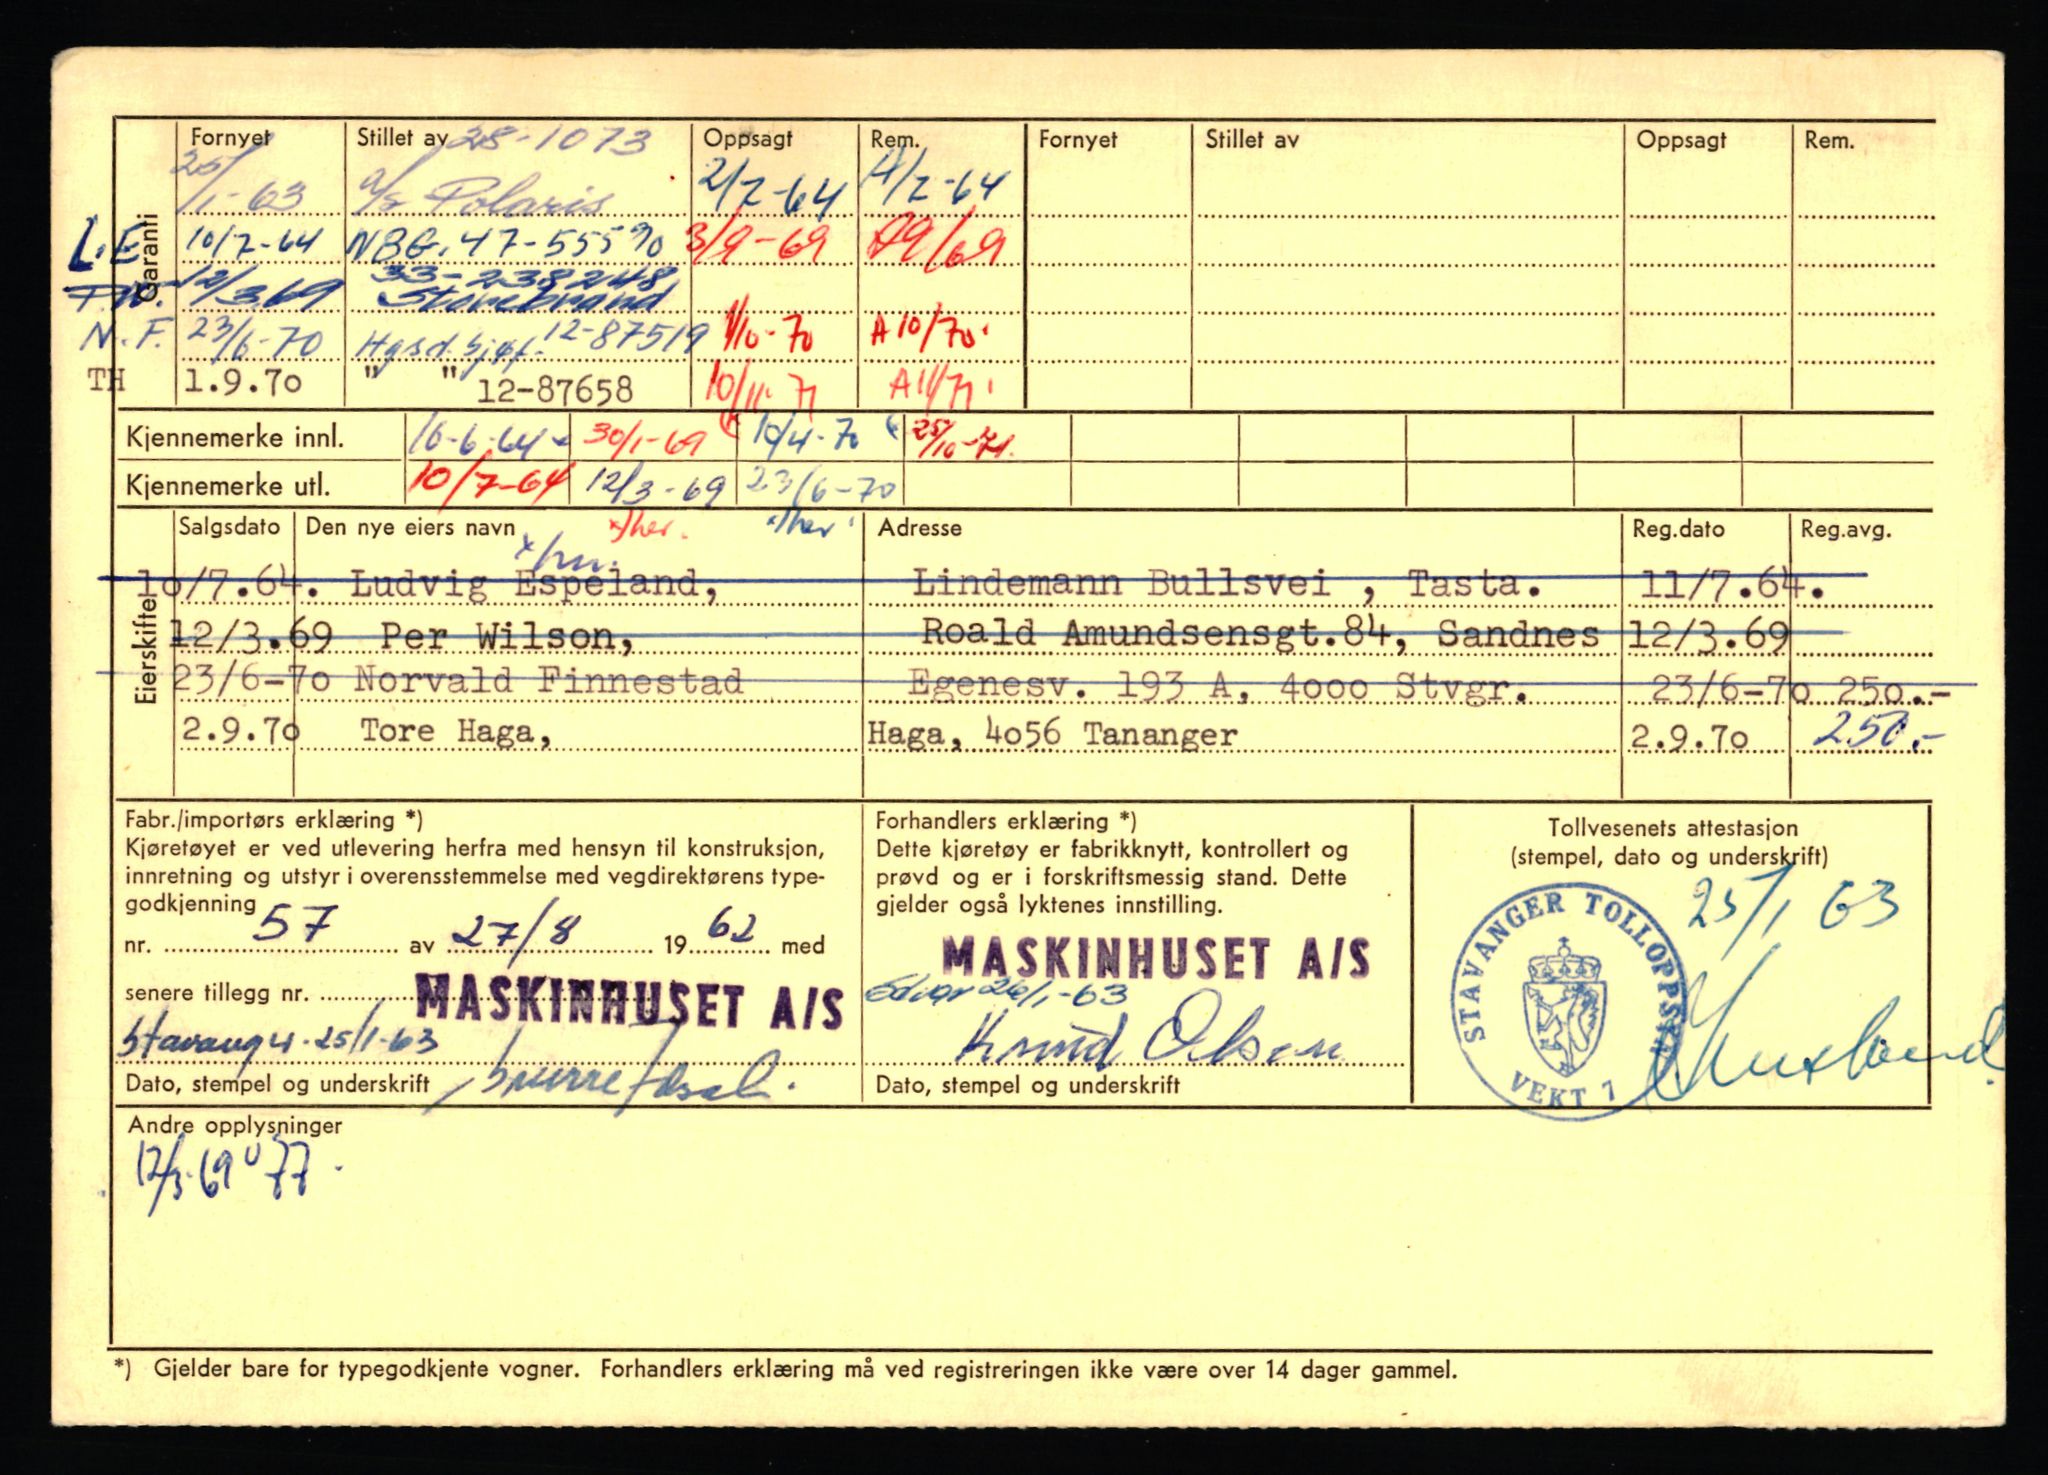 Garanti
Fornyet Stillet av 28-1073 Oppsagt Rem. Fornyet Stillet av Oppsagt Rem.
25/1-63 a/s Polaris 2/7-64 A/7-64
L.E 10/7-64 NBG. 47-55590 3/9-69 A9/69
P.W. 12/3.69 33-238248 Storebrand
N.F. 23/6-70 Hgsd. Sjøf. 12-87519 1/10-70 A 10/70
TH 1.9.70 " " 12-87658 10/11.71 A11/71
Kjennemerke innl. 16-6-64 30/1-69 10/4-70 25/10-71.
Kjennemerke utl. 10/7-64 12/3-69 23/6-70
Eierskifte
Salgsdato Den nye eiers navn Adresse Reg.dato Reg.avg.
10/7.64. Ludvig Espeland, Lindemann Bullsvei , Tasta. 11/7.64.
12/3.69 Per Wilson, Roald Amundsensgt.84, Sandnes 12/3.69
23/6-70 Norvald Finnestad Egenesv. 193 A, 4000 Stvgr. 23/6-70 250.-
2.9.70 Tore Haga, Haga, 4056 Tananger 2.9.70 250.-
Fabr./importørs erklæring *)
Kjøretøyet er ved utlevering herfra med hensyn til konstruksjon,
innretning og utstyr i overensstemmelse med vegdirektørens type-
godkjenning
nr. 57 av 27/8 1962 med
senere tillegg nr.
MASKINHUSET A/S
Stavanger 25/1-63
Dato, stempel og underskrift
Forhandlers erklæring *)
Dette kjøretøy er fabrikknytt, kontrollert og
prøvd og er i forskriftsmessig stand. Dette
gjelder også lyktenes innstilling.
MASKINHUSET A/S
26/1-63
Knud Olsen
Dato, stempel og underskrift
Tollvesenets attestasjon
(stempel, dato og underskrift)
25/1 63
STAVANGER TOLLOPPSYN
VEKT 7
Andre opplysninger
12/3.69 U 77.
*) Gjelder bare for typegodkjente vogner. Forhandlers erklæring må ved registreringen ikke være over 14 dager gammel.